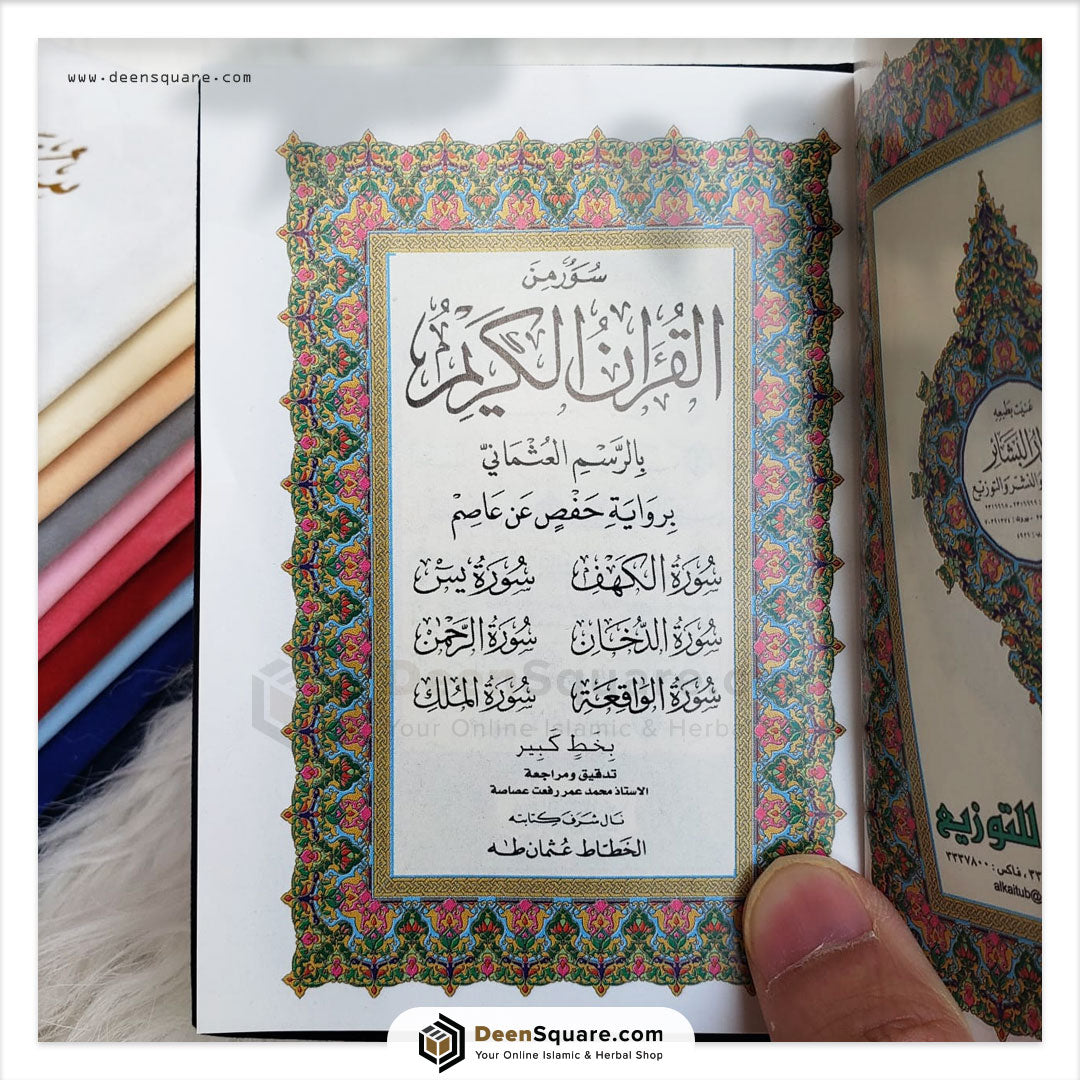 www.deensquare.com
سُوَرٌ مِنَ
القُرْآنِ الْكَرِيْمِ
بِالرَّسْمِ العُثْمَانِيّ
بِرِوَايَةِ حَفْصٍ عَن عَاصِمْ
سُورَةُ الكَهْفْ سُورَةُ يسٓ
سُورَةُ الدُّخَانْ سُورَةُ الرَّحْمٰن
سُورَةُ الوَاقِعَة سُورَةُ المُلك
بِخَطٍ كَبِير
تدقيق ومراجعة
الاستاذ محمد عمر رفعت عصاصة
نال شرف كتابته
الخطاط عثمان طه
عُنيت بطبعِه
البَشائر
والنشر والتوزيع
للتوزيع
فاكس : ٣٣٣٧٨٠٠
alkaitub@
DeenSquare
Your Online Islamic & Herbal
DeenSquare.com
Your Online Islamic & Herbal Shop